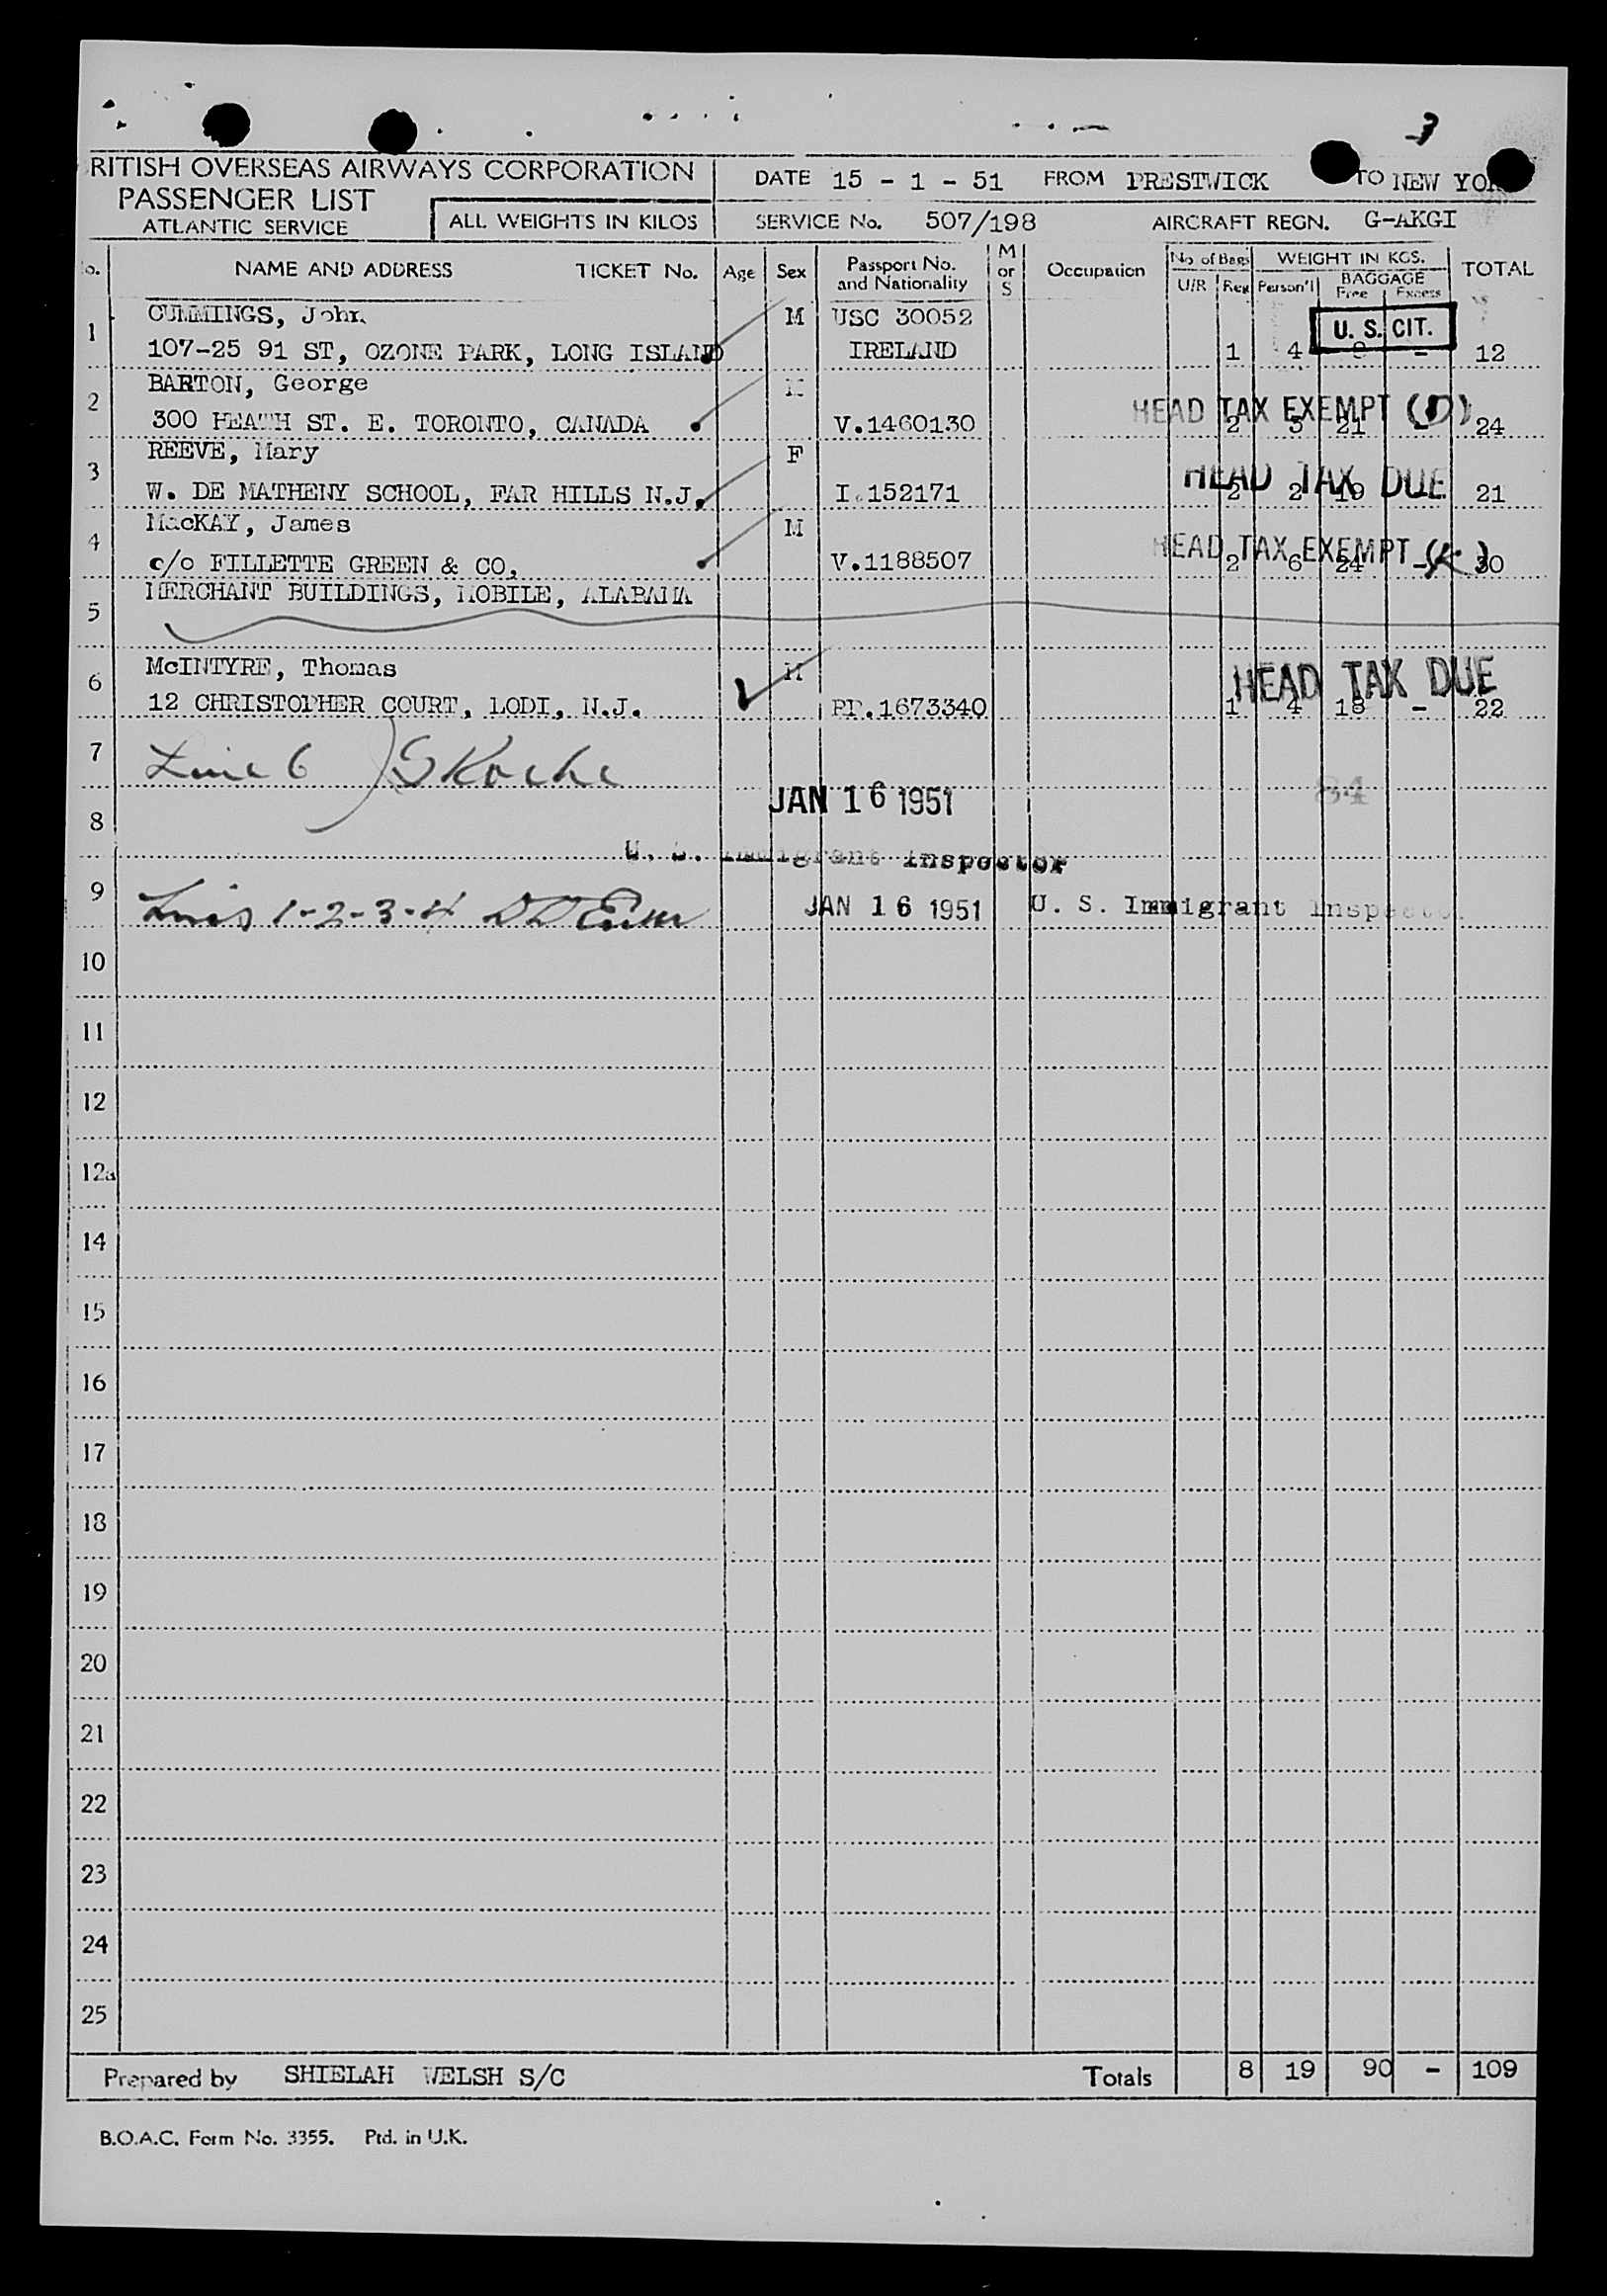 3
RITISH OVERSEAS AIRWAYS CORPORATION
PASSENGER LIST
ATLANTIC SERVICE
ALL WEIGHTS IN KILOS
DATE 15 - 1 - 51 FROM PRESTWICK TO NEW YOR
SERVICE No. 507/198 AIRCRAFT REGN. G-AKGI
o. NAME AND ADDRESS TICKET No. Age Sex Passport No. and Nationality M or S Occupation No. of Bags U/R Reg WEIGHT IN KGS. Person'l BAGGAGE Free Excess TOTAL
1 CUMMINGS, John M USC 30052 U. S. CIT.
107-25 91 ST, OZONE PARK, LONG ISLAND IRELAND 1 4 8 - 12
2 BARTON, George M HEAD TAX EXEMPT (D)
300 HEATH ST. E. TORONTO, CANADA V.1460130 2 3 21 - 24
3 REEVE, Mary F HEAD TAX DUE
W. DE MATHENY SCHOOL, FAR HILLS N.J. I.152171 2 2 19 21
4 MacKAY, James M HEAD TAX EXEMPT
c/o FILLETTE GREEN & CO, V.1188507 2 6 24 - 30
5 MERCHANT BUILDINGS, MOBILE, ALABAMA
6 McINTYRE, Thomas M HEAD TAX DUE
12 CHRISTOPHER COURT, LODI, N.J. PP.1673340 1 4 18 - 22
7 Line 6
JAN 16 1951 84
8
U. S. Immigrant Inspector
9 Lines 1-2-3-4 JAN 16 1951 U. S. Immigrant Inspector
10
11
12
12a
14
15
16
17
18
19
20
21
22
23
24
25
Prepared by SHIELAH WELSH S/C Totals 8 19 90 - 109
B.O.A.C. Form No. 3355. Ptd. in U.K.